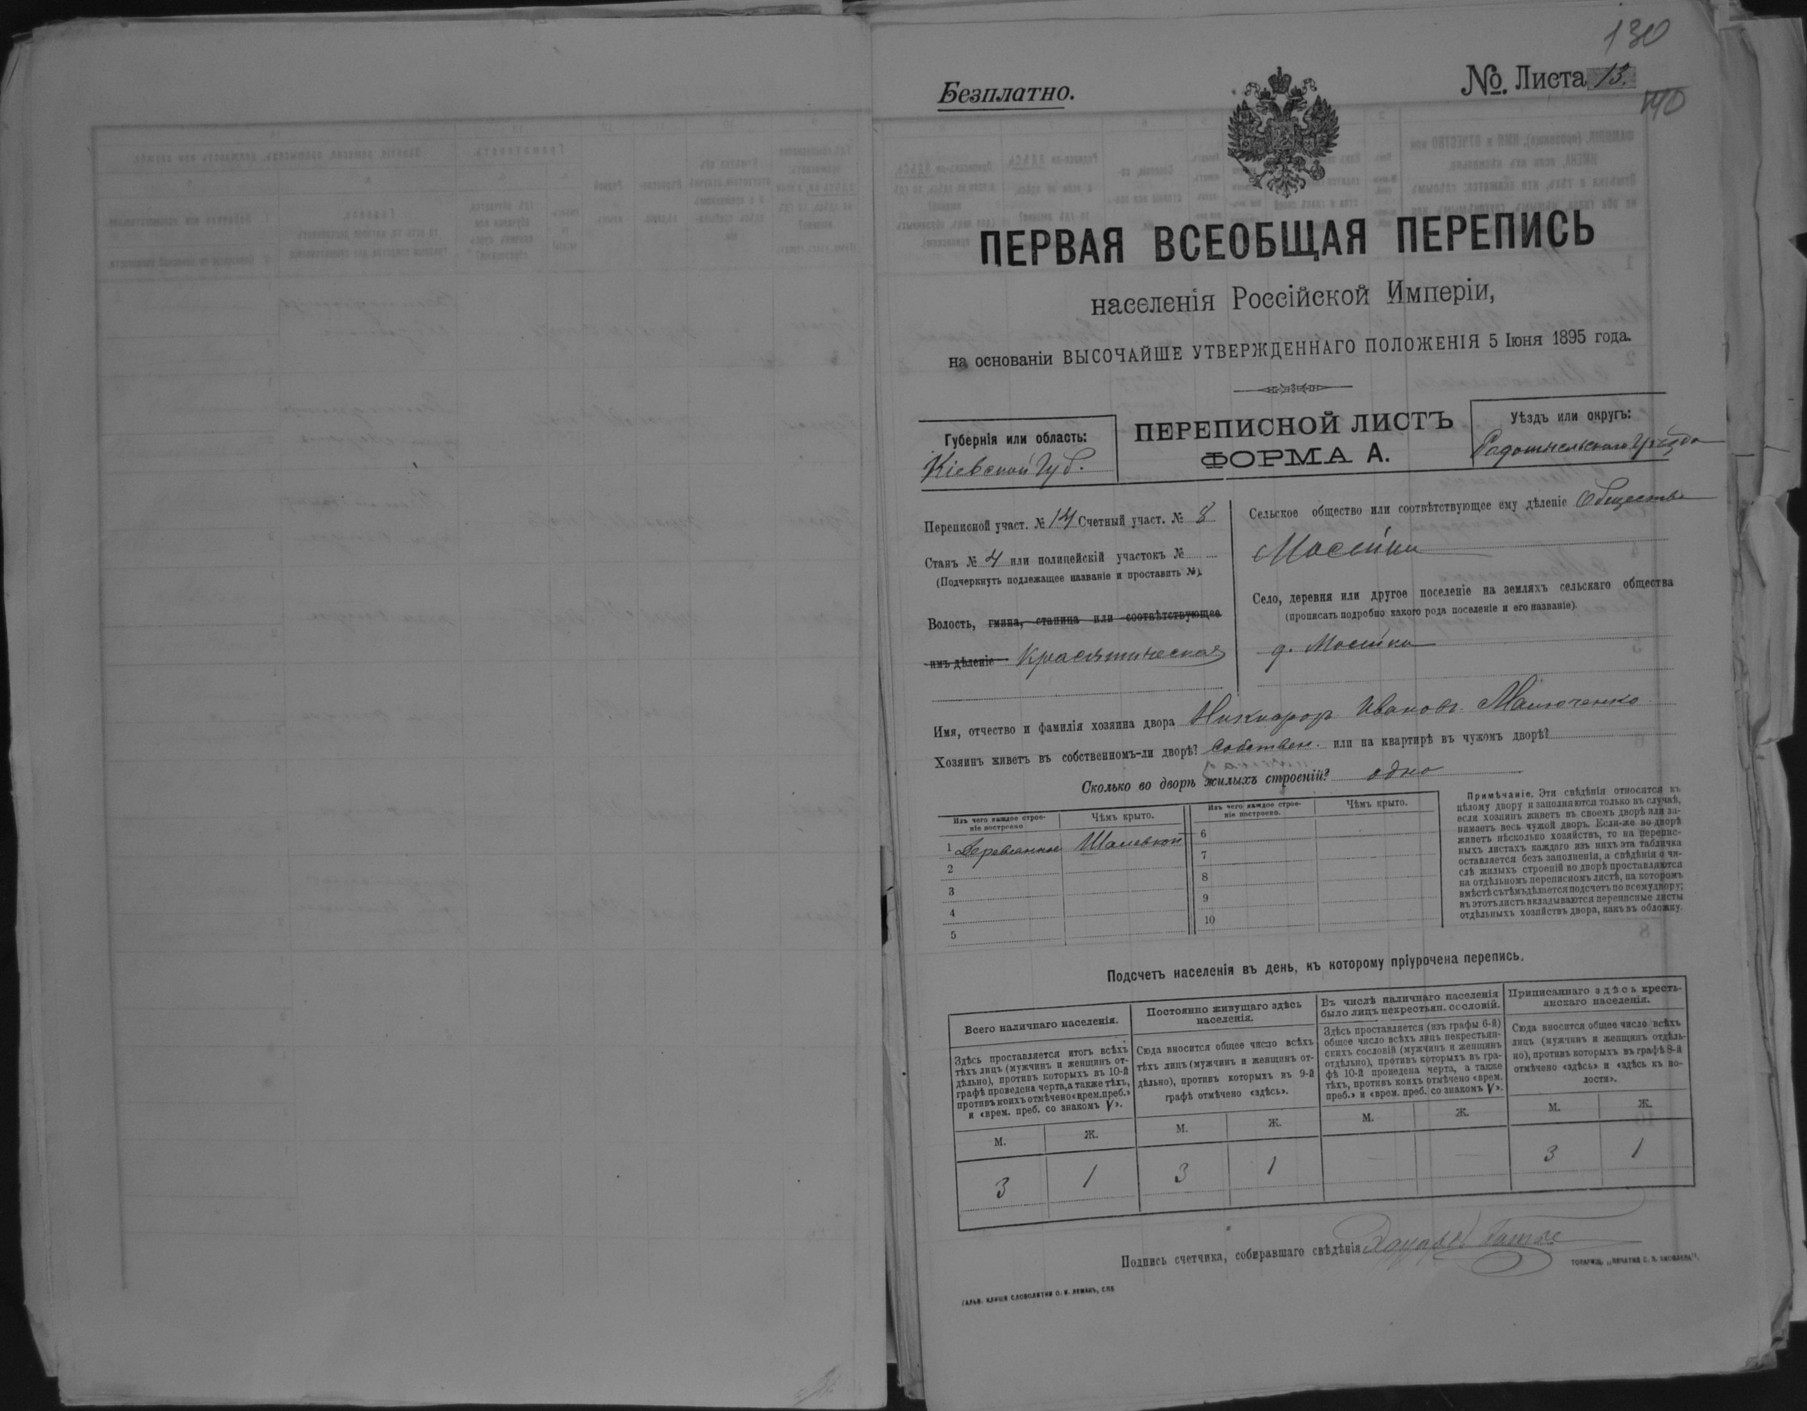 130
Безплатно.
№ Листа 13.
140
ПЕРВАЯ ВСЕОБЩАЯ ПЕРЕПИСЬ
населенія Россійской Имперіи,
на основаніи ВЫСОЧАЙШЕ УТВЕРЖДЕННАГО ПОЛОЖЕНІЯ 5 Іюня 1895 года.
Губернія или область:
Кіевской Губ.
ПЕРЕПИСНОЙ ЛИСТЪ
ФОРМА А.
Уѣздъ или округъ:
Радомысльскаго Уѣзда
Переписной участ. № 14 Счетный участ. № 8
Станъ № 4 или полицейскій участокъ №
(Подчеркнуть подлежащее названіе и проставить №).
Волость, гмина, станица или соотвѣтствующее
имъ дѣленіе
Сельское общество или соотвѣтствующее ему дѣленіе Общество
Село, деревня или другое поселеніе на земляхъ сельскаго общества
(прописать подробно какого рода поселеніе и его названіе).
д.
Имя, отчество и фамилія хозяина двора Никифоръ Ивановъ
Хозяинъ живетъ въ собственномъ-ли дворѣ? Собствен. или на квартирѣ въ чужомъ дворѣ?
Сколько во дворѣ жилыхъ строеній? одно
Изъ чего каждое строе-
ніе построено
Чѣмъ крыто.
Изъ чего каждое строе-
ніе построено.
Чѣмъ крыто.
1 Деревянное
2
3
4
5
6
7
8
9
10
Примѣчаніе. Эти свѣдѣнія относятся къ
цѣлому двору и заполняются только въ случаѣ,
если хозяинъ живетъ въ своемъ дворѣ или за-
нимаетъ весь чужой дворъ. Если-же во дворѣ
живетъ нѣсколько хозяйствъ, то на перепис-
ныхъ листахъ каждаго изъ нихъ эта табличка
оставляется безъ заполненія, а свѣдѣнія о чи-
слѣ жилыхъ строеній во дворѣ проставляются
на отдѣльномъ переписномъ листѣ, на которомъ
вмѣстѣ съ тѣмъ дѣлается подсчетъ по всему двору;
въ этотъ листъ вкладываются переписные листы
отдѣльныхъ хозяйствъ двора, какъ въ обложку.
Подсчетъ населенія въ день, къ которому пріурочена перепись.
Всего наличнаго населенія.
Здѣсь проставляется итогъ всѣхъ
тѣхъ лицъ (мужчинъ и женщинъ от-
дѣльно), противъ которыхъ въ 10-й
графѣ проведена черта, а также тѣхъ,
противъ коихъ отмѣчено «врем. преб.»
и «врем. преб. со знакомъ V».
М. Ж.
3 1
Постоянно живущаго здѣсь
населенія.
Сюда вносится общее число всѣхъ
тѣхъ лицъ (мужчинъ и женщинъ от-
дѣльно), противъ которыхъ въ 9-й
графѣ отмѣчено «здѣсь».
М. Ж.
3 1
Въ числѣ наличнаго населенія
было лицъ некрестьян. сословій.
Здѣсь проставляется (изъ графы 6-й)
общее число всѣхъ лицъ некрестьян-
скихъ сословій (мужчинъ и женщинъ
отдѣльно), противъ которыхъ въ гра-
фѣ 10-й проведена черта, а также
тѣхъ, противъ коихъ отмѣчено «врем.
преб.» и «врем. преб. со знакомъ V».
М. Ж.
— —
Приписаннаго здѣсь кресть-
янскаго населенія.
Сюда вносится общее число всѣхъ
лицъ (мужчинъ и женщинъ отдѣль-
но), противъ которыхъ въ графѣ 8-й
отмѣчено «здѣсь» и «здѣсь въ во-
лости».
М. Ж.
3 1
Подпись счетчика, собиравшаго свѣдѣнія